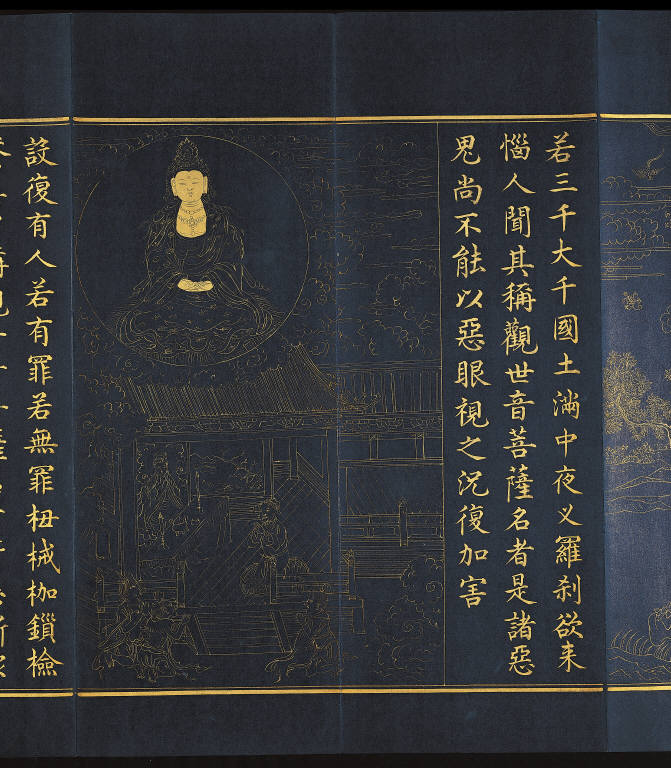 若三千大千國土滿中夜义羅刹欲来
惱人聞其稱觀世音菩薩名者是諸惡
鬼尚不能以惡眼視之况復加害
設復有人若有罪若無罪杻械枷鎖檢